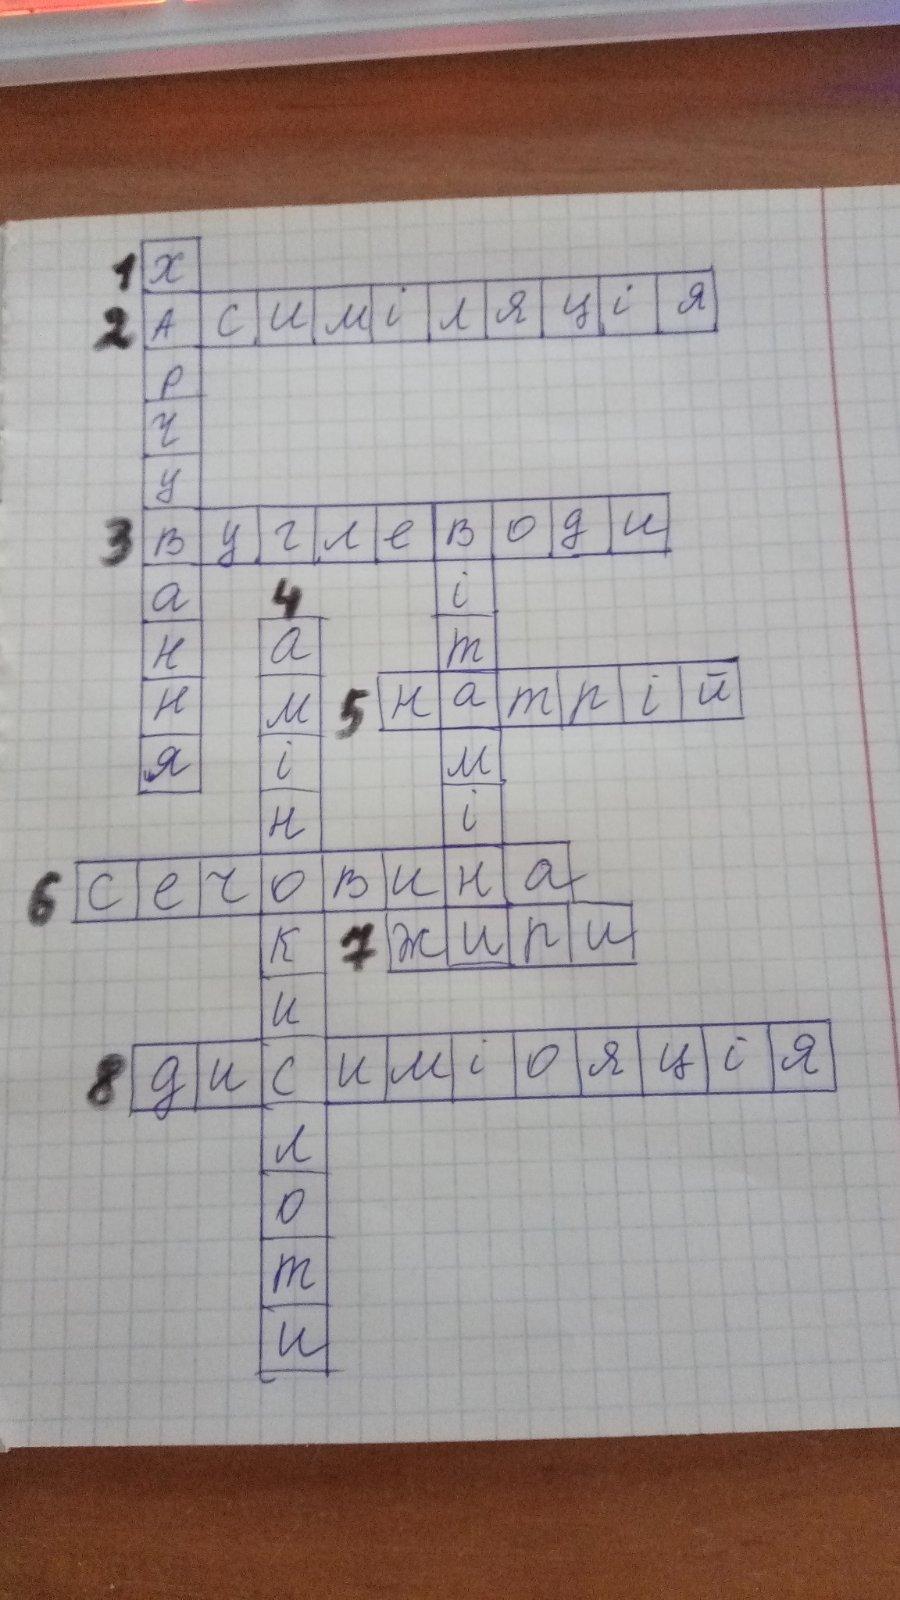 1 х
2 А с и м і л я ц і я
р
ч
у
3 в у г л е в о д и
а 4 і
н а т
н м 5 н а т р і й
я і м
н і
6 с е ч о в и н а
к 7 ж и р и
и
8 д и с и м і о я ц і я
л
о
т
и